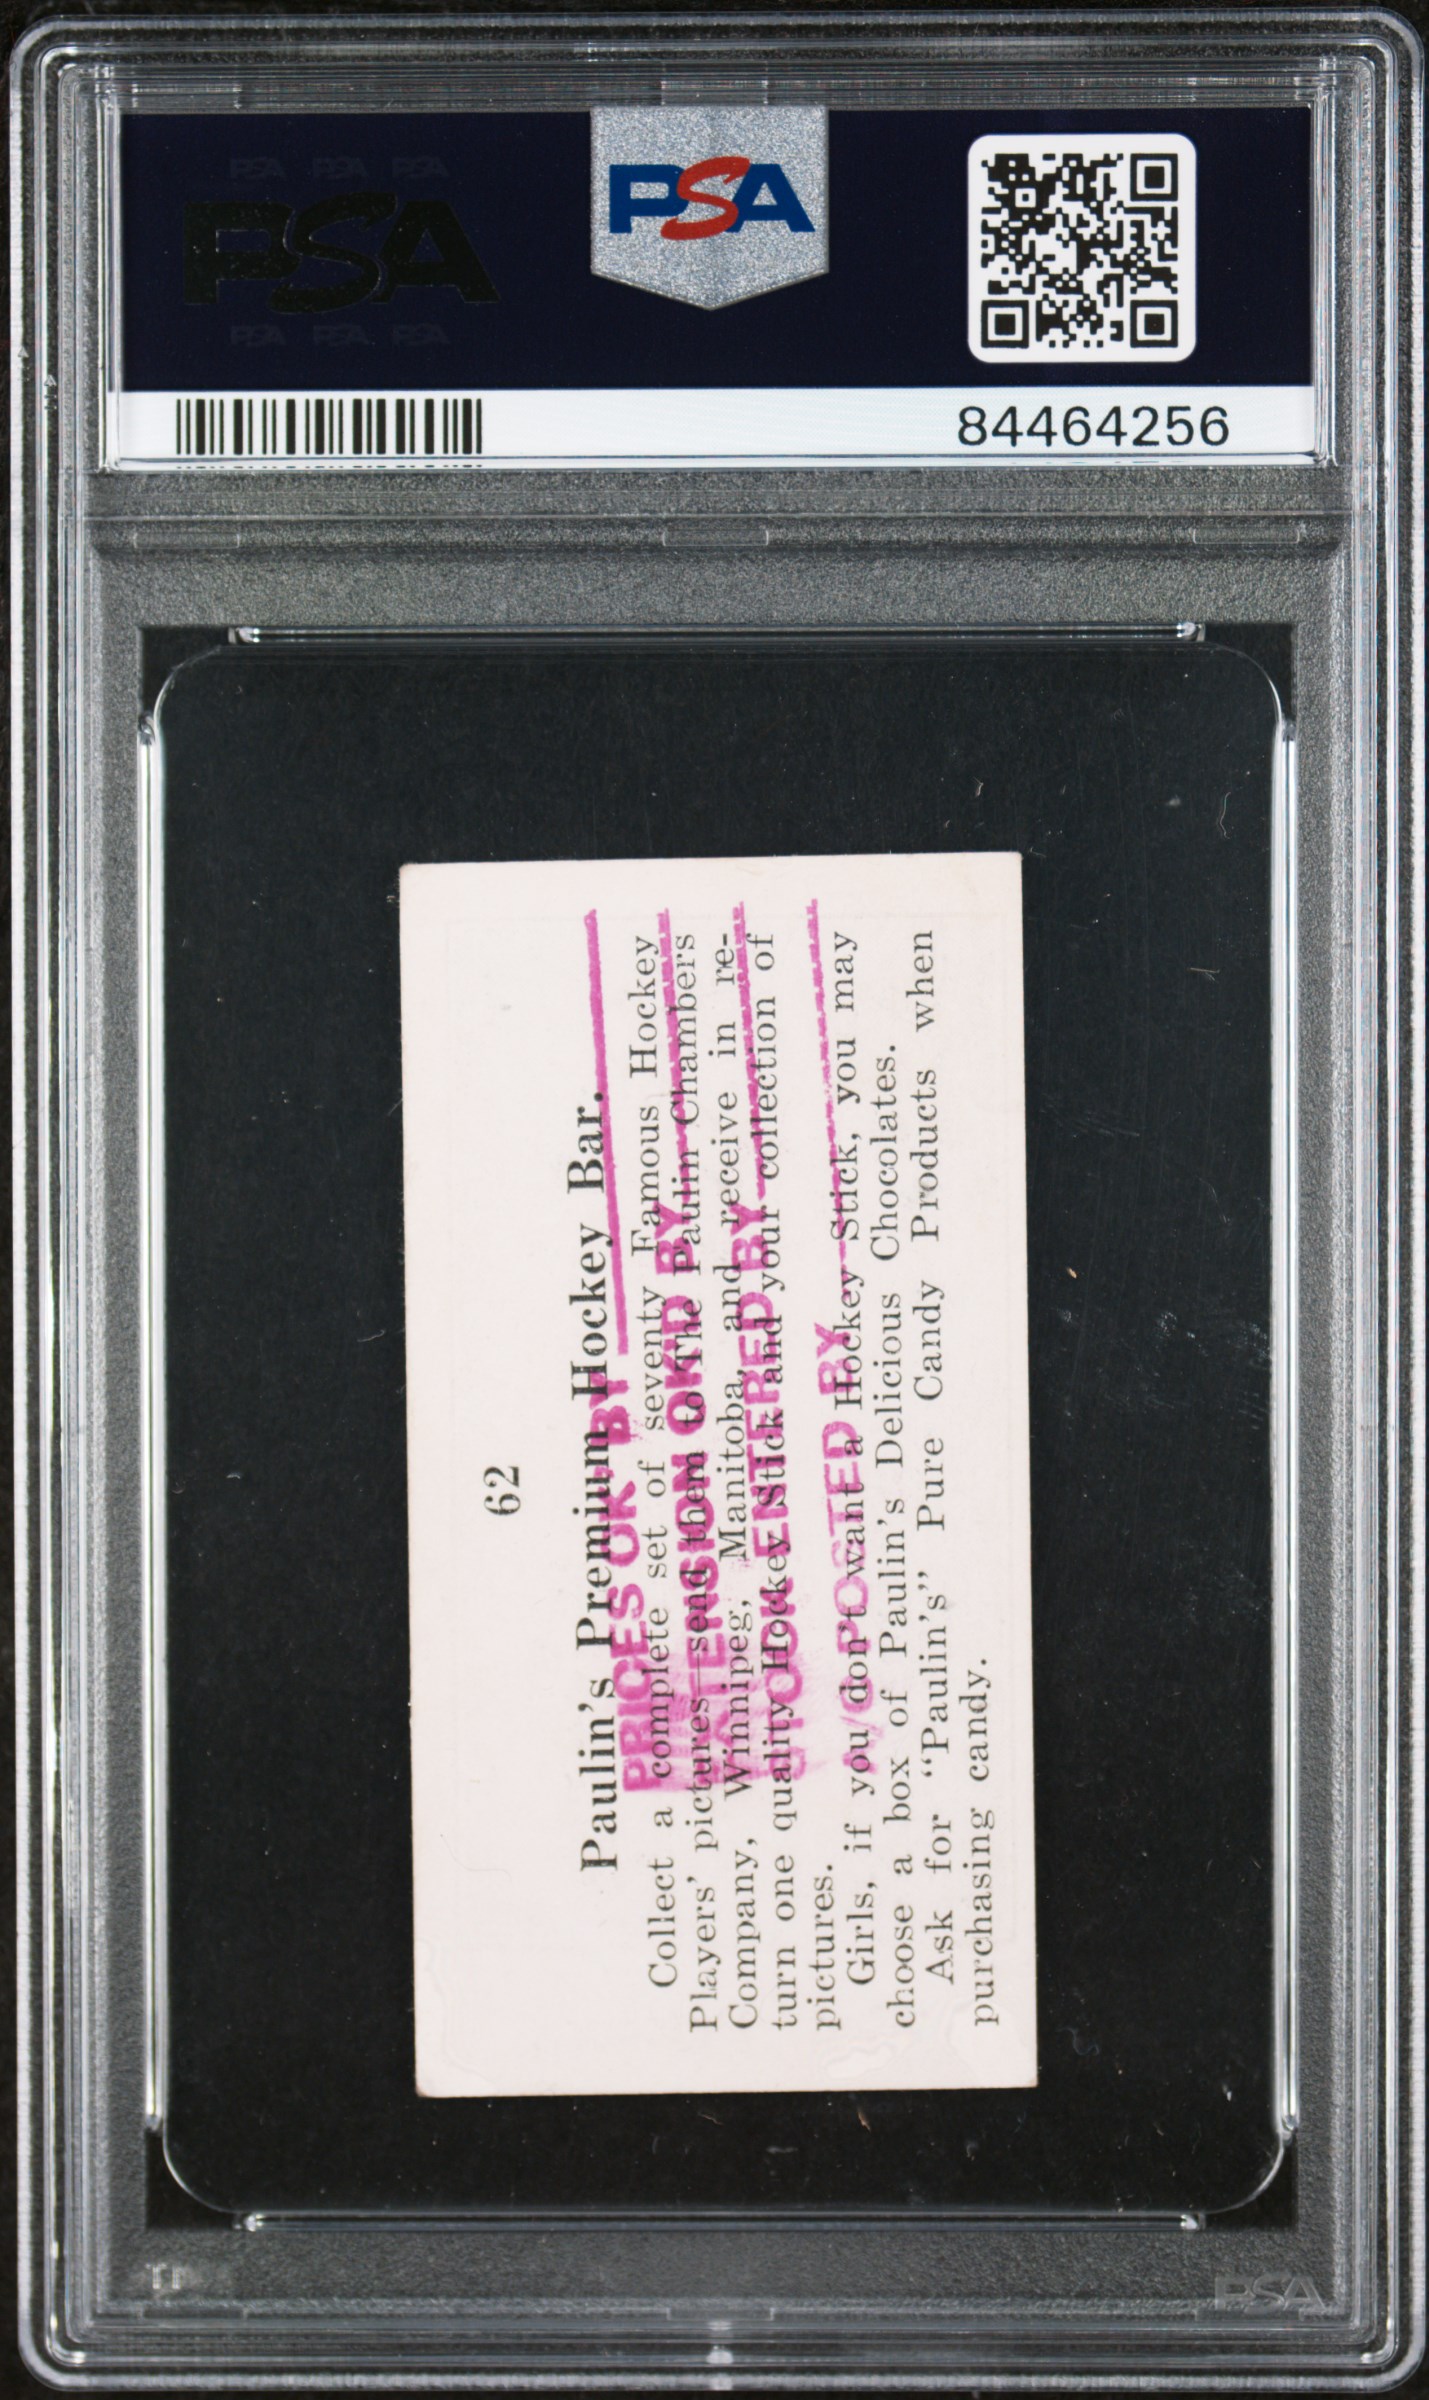 PSA PSA PSA
PSA
PSA PSA PSA
PSA
84464256
62
Paulin's Premium Hockey Bar.
Collect a complete set of seventy Famous Hockey
Players' pictures—send them to The Paulin Chambers
Company, Winnipeg, Manitoba, and receive in re-
turn one quality Hockey Stick and your collection of
pictures.
Girls, if you don't want a Hockey Stick, you may
choose a box of Paulin's Delicious Chocolates.
Ask for "Paulin's" Pure Candy Products when
purchasing candy.
PRICES OK BY
EXTENSION OKID BY
STOCK ENTERED BY
POSTED BY
PSA